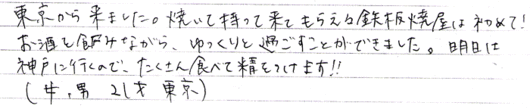 東京から来ました。焼いて持って来てもらえる鉄板焼屋は初めて!
お酒を飲みながら、ゆっくりと過ごすことができました。明日は
神戸に行くので、たくさん食べて精をつけます!!
(牛,男 21才 東京)